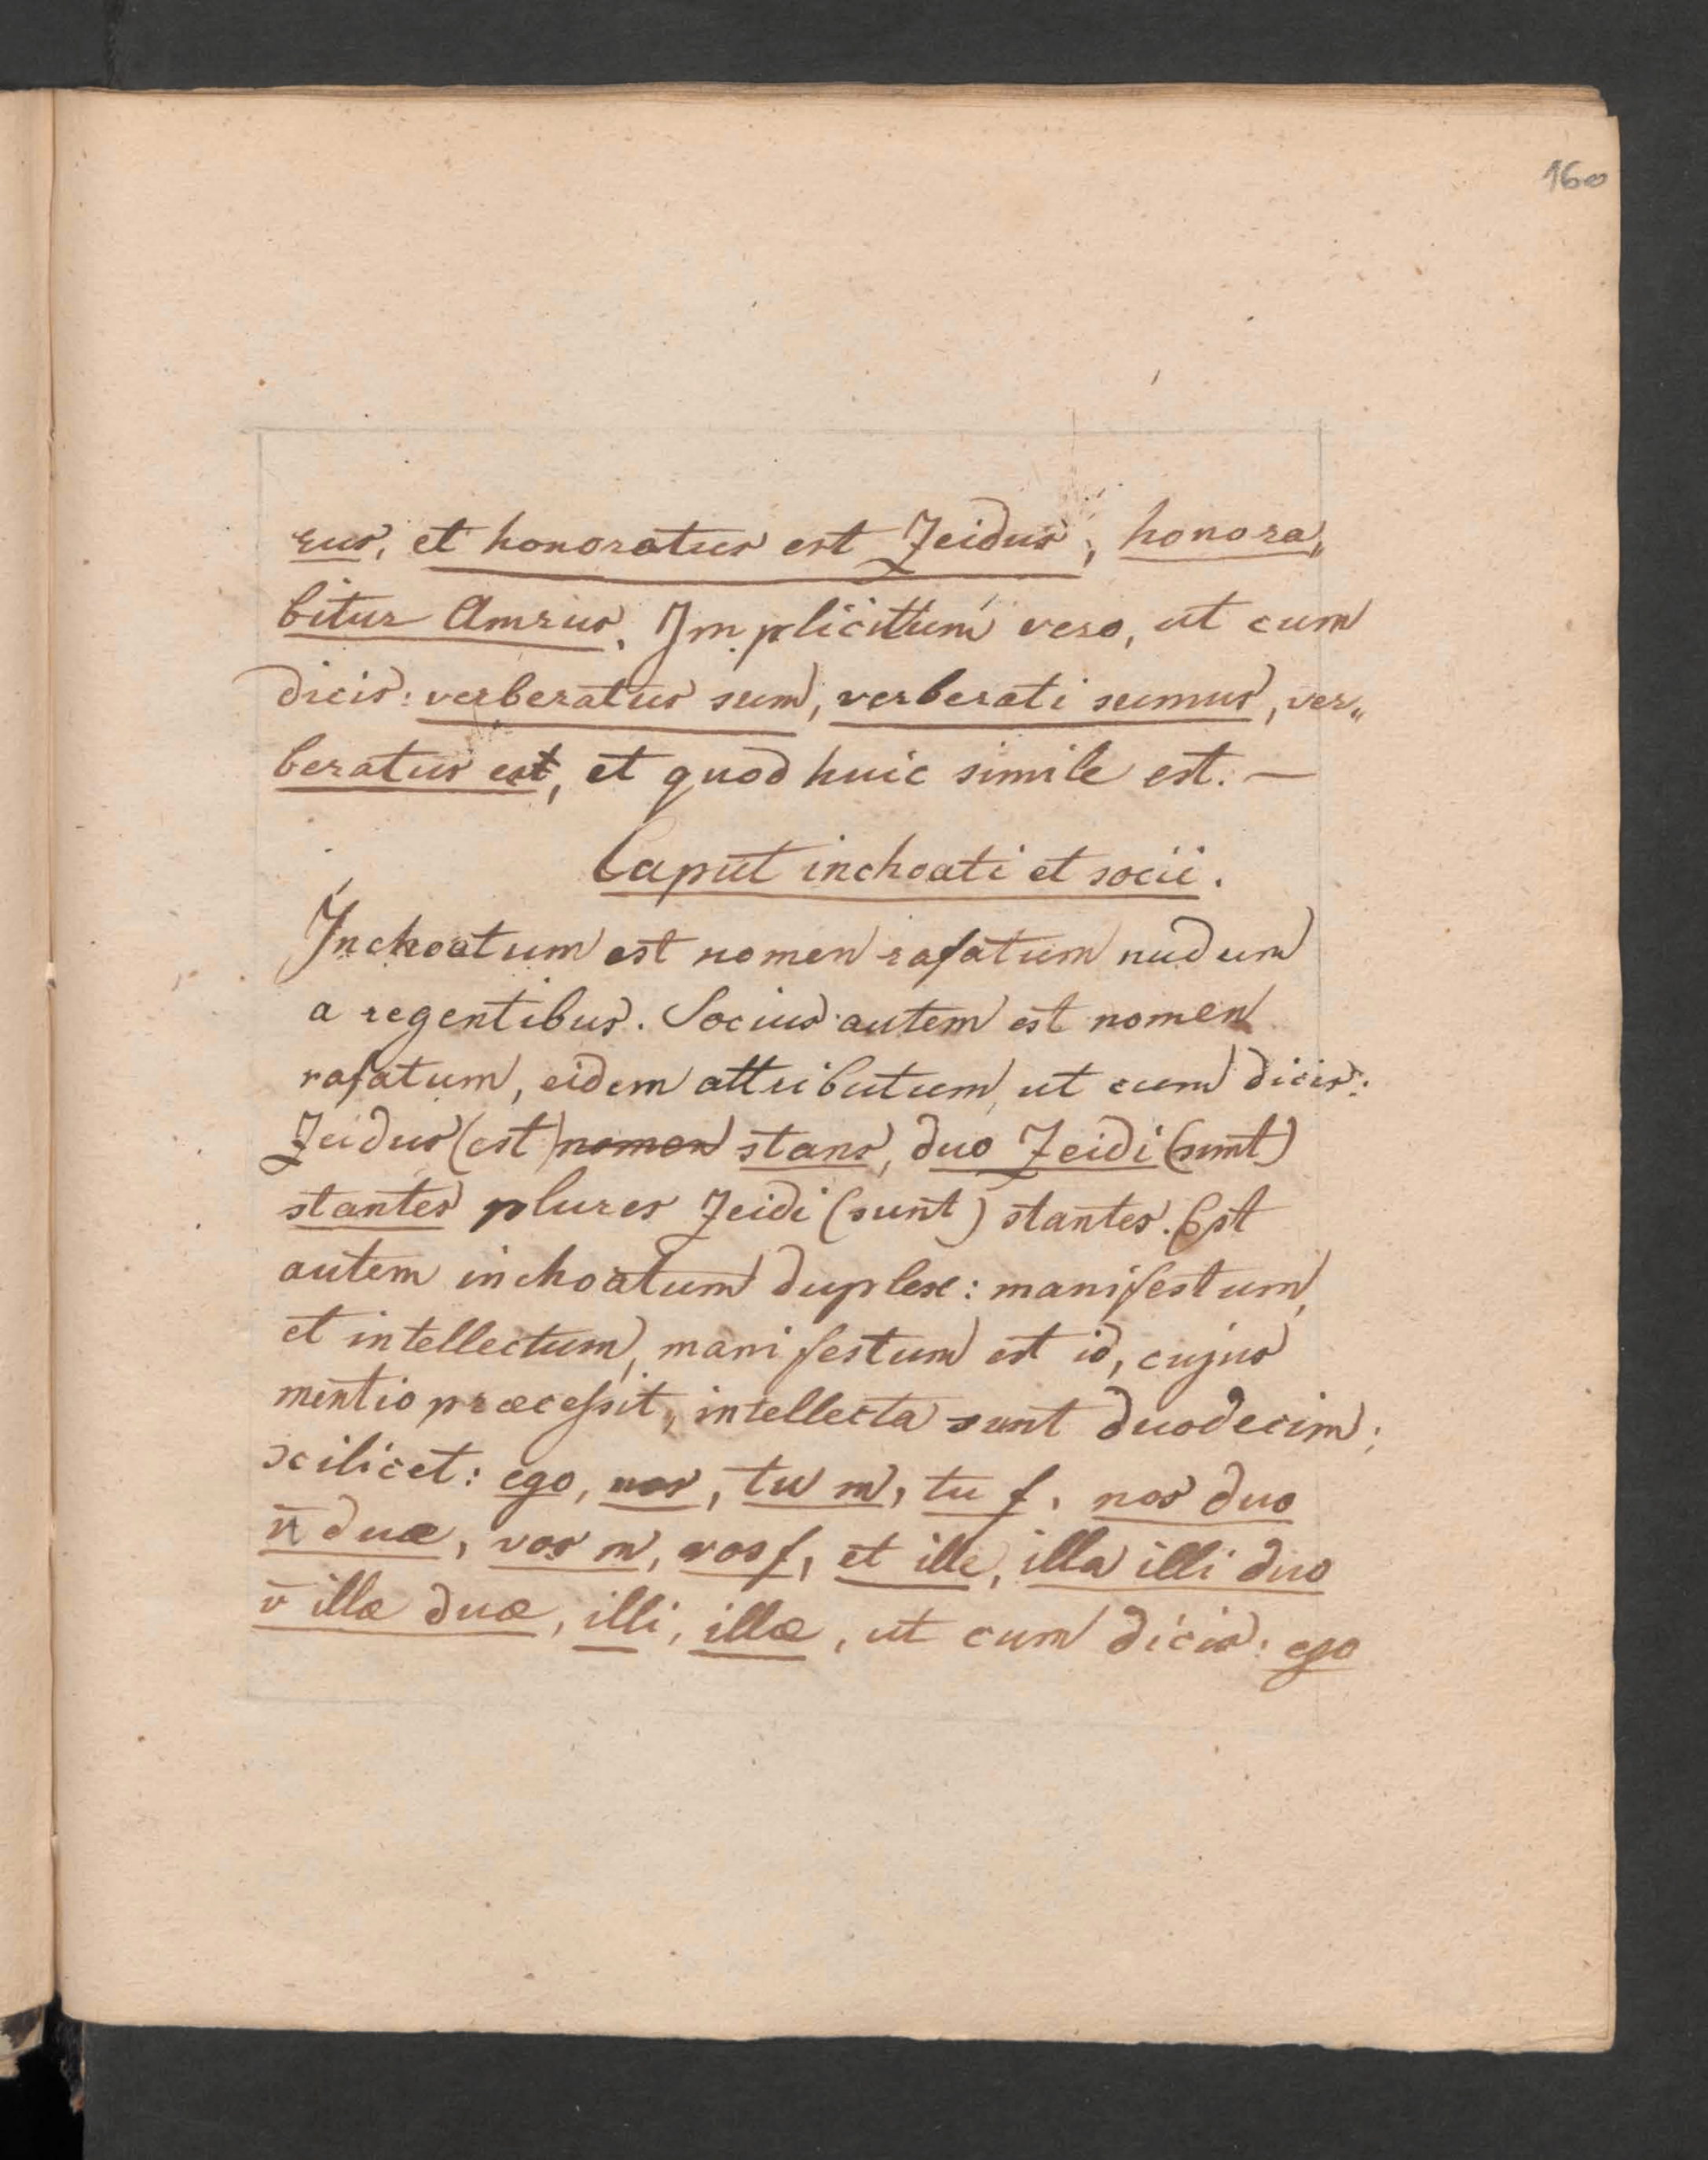 160
rus, et honoratus est Zeidus, honora„
bitur Amrus. Implicitum vero, ut cum
dicis: verberatus sum, verberati sumus, ver„
beratus est, et quod huic simile est. —
Caput inchoati et socii.
Inchoatum est nomen rafatum nudum
a regentibus. Socius autem est nomen
rafatum, eidem attributum, ut cum dicis:
Zeidus (est) nomen stans, duo Zeidi (sunt)
stantes plures Zeidi (sunt) stantes. Est
autem inchoatum duplex: manifestum,
et intellectum, manifestum est id, cujus
mentio præcessit, intellecta sunt duodecim;
scilicet: ego, nos, tu m, tu f, nos duo
v̄ duæ, vos m, vos f, et ille, illa illi duo
v̄ illæ duæ, illi, illæ, ut cum dicis: ego